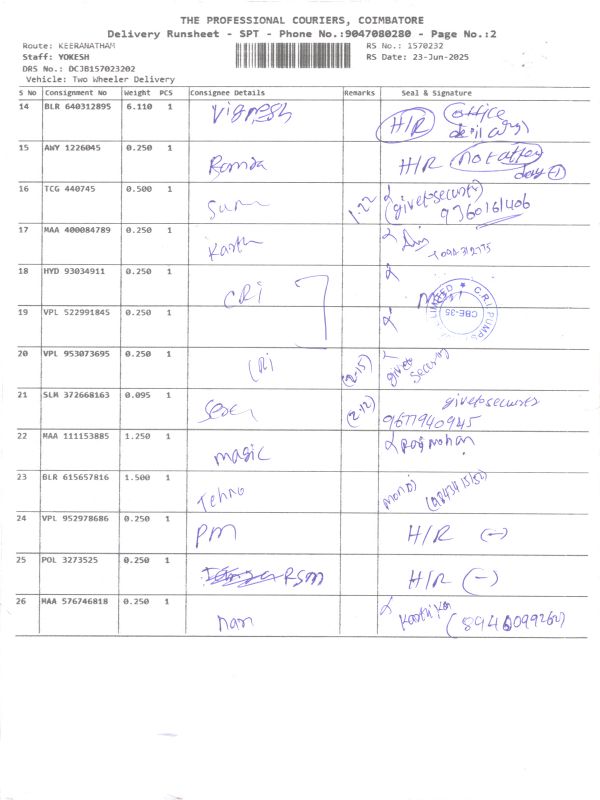 THE PROFESSIONAL COURIERS, COIMBATORE
Delivery Runsheet - SPT - Phone No.:9047080280 - Page No.:2
Route: KEERANATHAM RS No.: 1570232
Staff: YOKESH RS Date: 23-Jun-2025
DRS No.: DCJB157023202
Vehicle: Two Wheeler Delivery
S No Consignment No Weight PCS Consignee Details Remarks Seal & Signature
14 BLR 640312895 6.110 1 Vignesh H/R office
15 AWY 1226045 0.250 1 H/R
16 TCG 440745 0.500 1 1.22 giveto security
9360161406
17 MAA 400084789 0.250 1 Karth
18 HYD 93034911 0.250 1 CRI
CRI PUMPS LIMITED CBE-35
19 VPL 522991845 0.250 1
20 VPL 953073695 0.250 1 CRI (2.15) giveto security
21 SLM 372668163 0.095 1 (2.12) giveto security
9677940945
22 MAA 111153885 1.250 1 magic Raj mohan
23 BLR 615657816 1.500 1 Tehno
24 VPL 952978686 0.250 1 PM H/R (-)
25 POL 3273525 0.250 1 RSM H/R (-)
26 MAA 576746818 0.250 1 nan